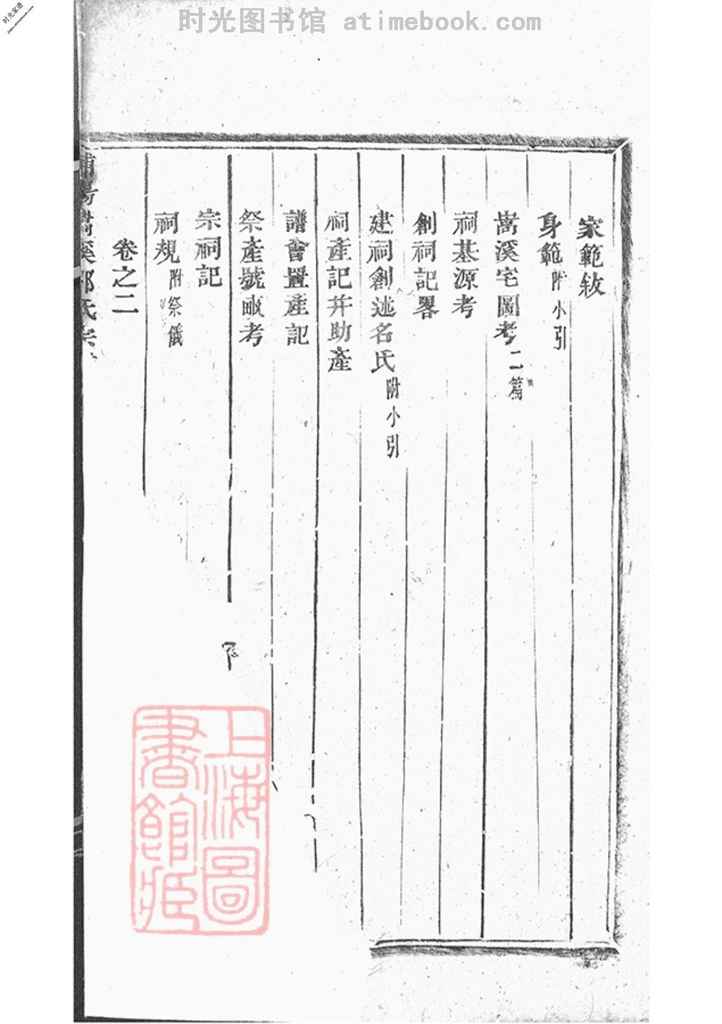 时光图书馆 atimebook.com
家範敘
身範 附小引
嵩溪宅圖考 二篇
祠基源考
創祠記畧
建祠創述名氏 附小引
祠產記并助產
譜會置產記
祭產號畝考
宗祠記
祠規 附祭儀
卷之二
上海圖書館藏